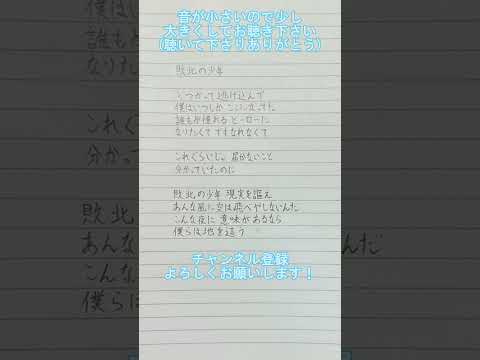 音が小さいので少し
大きくしてお聴き下さい
(聴いて下さりありがとう)
敗北の少年
いつかって逃げ込んで
僕はいつしかここに立ってた
誰もが憧れるヒーローに
なりたくて すすなれなくて
これくらいじゃ 届かないこと
分かっていたのに
敗北の少年 現実を謳え
あんな風に空は飛べやしないんだ
こんな夜に 意味があるなら
僕らは地を這う
チャンネル登録
よろしくお願いします!